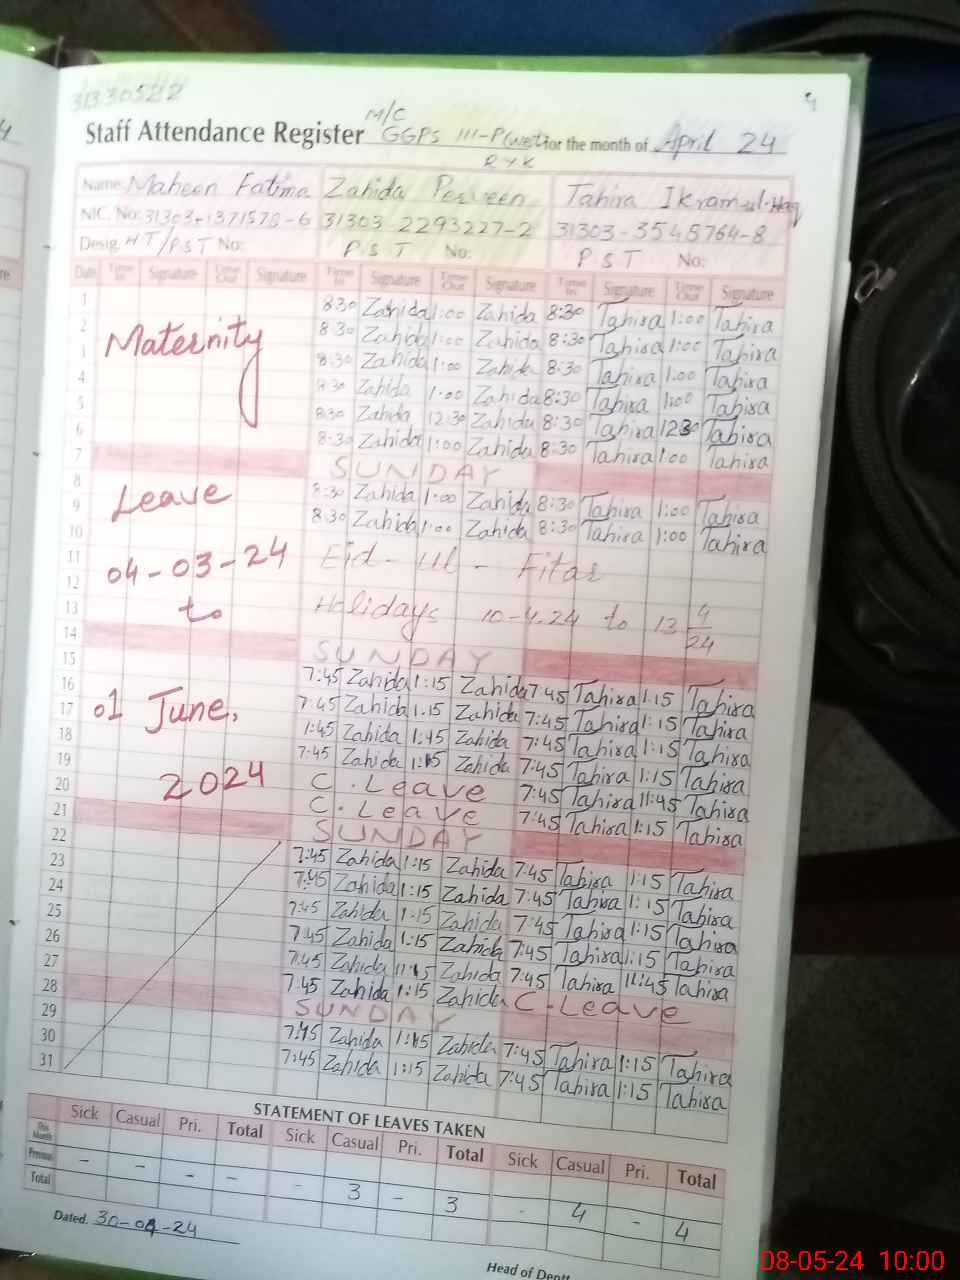 31330522
M/C
Staff Attendance Register GGPS III-P(West) for the month of April 24
RYK
Name: Maheen Fatima Zahida Perveen Tahira Ikram-ul-Haq
NIC. No: 31303-1371578-6 31303 2293227-2 31303-3545764-8
Desig. HT/P.S.T No: P.S.T No: P S T No:
Date Time In Signature Time Out Signature Time In Signature Time Out Signature Time In Signature Time Out Signature
1 8:30 Zahida 1:00 Zahida 8:30 Tahira 1:00 Tahira
2 Maternity 8:30 Zahida 1:00 Zahida 8:30 Tahira 1:00 Tahira
3 8:30 Zahida 1:00 Zahida 8:30 Tahira 1:00 Tahira
4 8:30 Zahida 1:00 Zahida 8:30 Tahira 1:00 Tahira
5 8:30 Zahida 12:30 Zahida 8:30 Tahira 12:30 Tahira
6 8:30 Zahida 1:00 Zahida 8:30 Tahira 1:00 Tahira
7 SUNDAY
8 Leave 8:30 Zahida 1:00 Zahida 8:30 Tahira 1:00 Tahira
9 8:30 Zahida 1:00 Zahida 8:30 Tahira 1:00 Tahira
10
11 04-03-24 Eid-Ul-Fitar
12
13 to Holidays 10-4.24 to 13 4/24
14 SUNDAY
15 7:45 Zahida 1:15 Zahida 7:45 Tahira 1:15 Tahira
16 7:45 Zahida 1:15 Zahida 7:45 Tahira 1:15 Tahira
17 01 June, 1:45 Zahida 1:15 Zahida 7:45 Tahira 1:15 Tahira
18 7:45 Zahida 1:15 Zahida 7:45 Tahira 1:15 Tahira
19 2024 C.Leave 7:45 Tahira 11:45 Tahira
20 C.Leave 7:45 Tahira 1:15 Tahira
21 SUNDAY
22 7:45 Zahida 1:15 Zahida 7:45 Tahira 1:15 Tahira
23 7:45 Zahida 1:15 Zahida 7:45 Tahira 1:15 Tahira
24 7:45 Zahida 1:15 Zahida 7:45 Tahira 1:15 Tahira
25 7:45 Zahida 1:15 Zahida 7:45 Tahira 1:15 Tahira
26 7:45 Zahida 11:45 Zahida 7:45 Tahira 11:45 Tahira
27 7:45 Zahida 1:15 Zahida C-Leave
28 SUNDAY
29 7:45 Zahida 1:15 Zahida 7:45 Tahira 1:15 Tahira
30 7:45 Zahida 1:15 Zahida 7:45 Tahira 1:15 Tahira
31
STATEMENT OF LEAVES TAKEN
Sick Casual Pri. Total Sick Casual Pri. Total Sick Casual Pri. Total
This Month
Previous
- - - - - 3 - 3 - 4 - 4
Total
Dated. 30-04-24
Head of Deptt
08-05-24 10:00